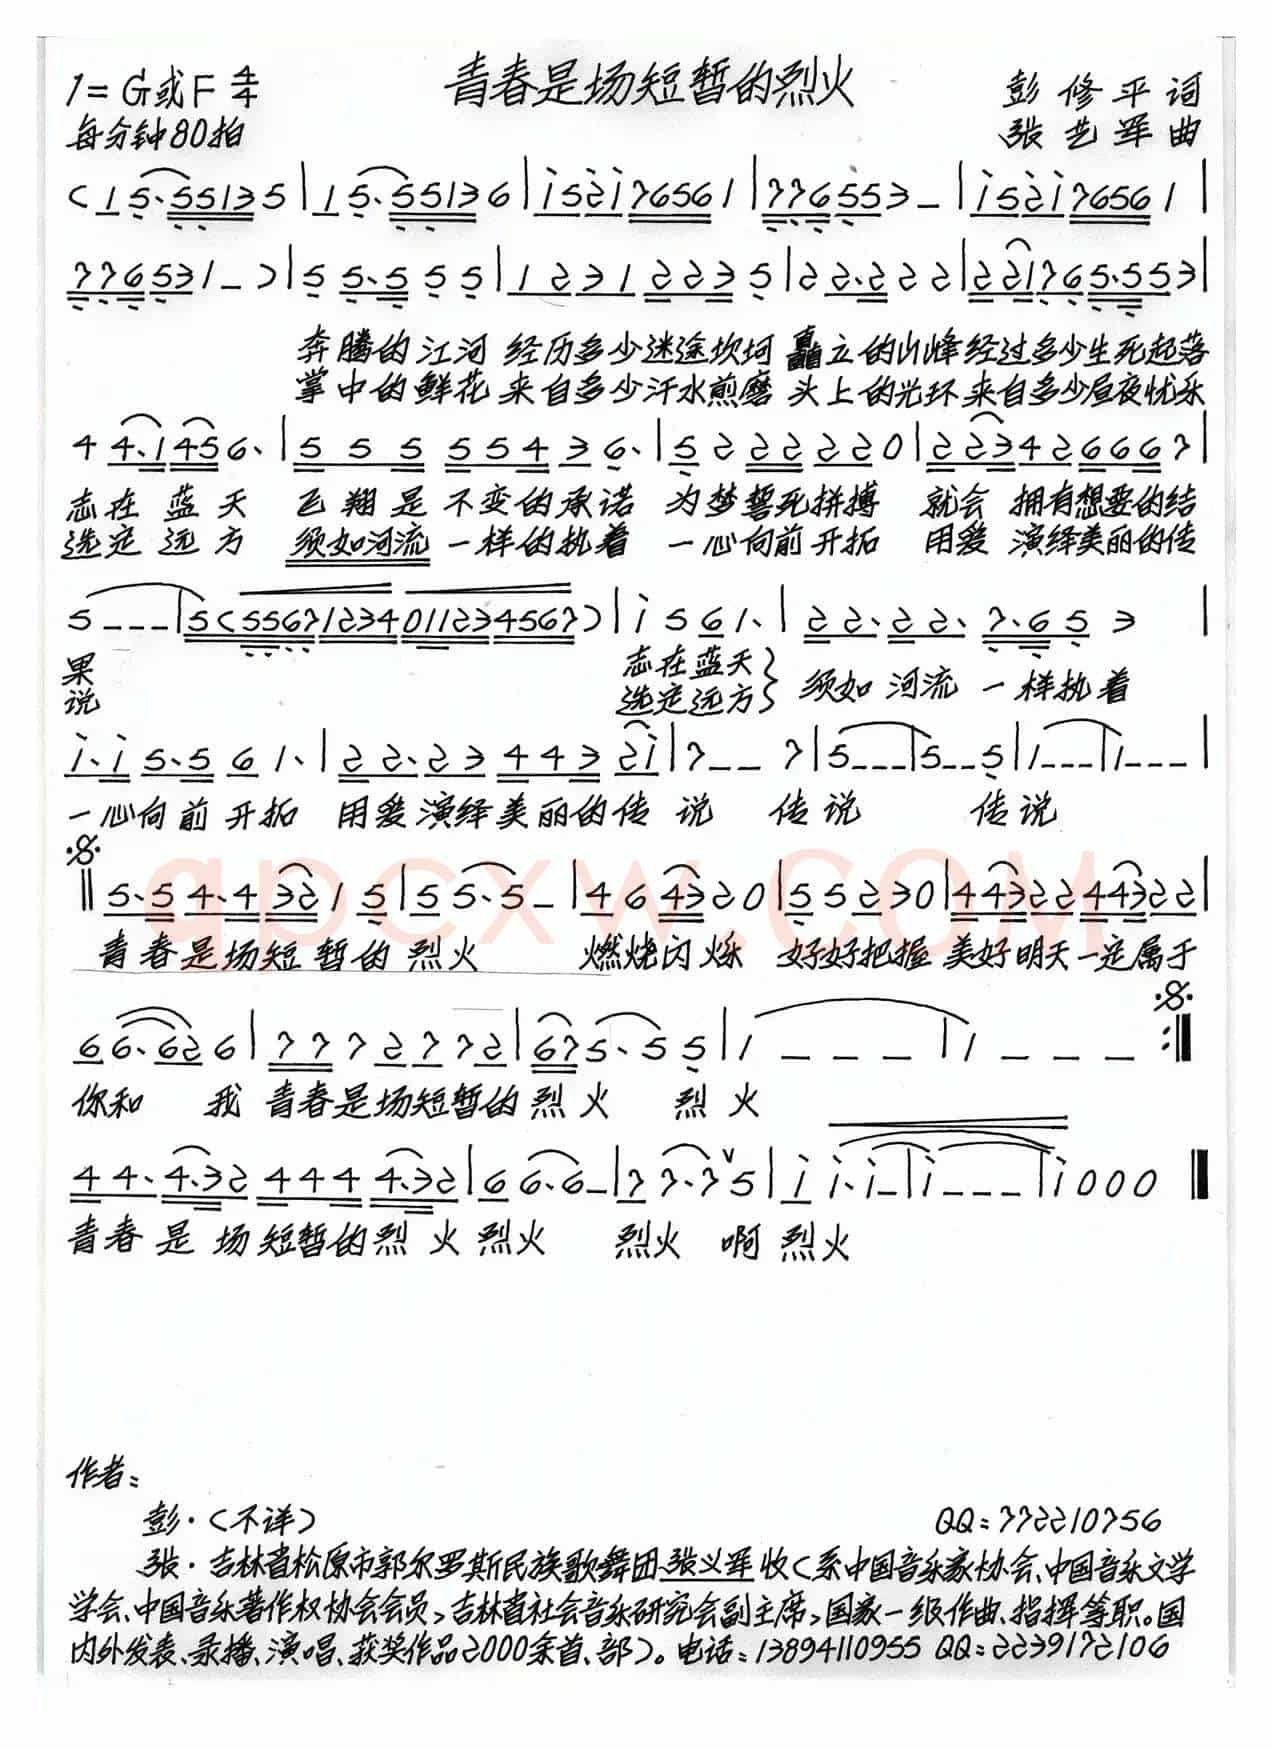 青春是场短暂的烈火
1=G或F 4/4
彭修平词
每分钟80拍
张艺军曲
(1 5·55135|1 5·55136|i52i76561|776553–|i52i76561|
776531–)|5 5·5 5 5|1 2 3 1 2 2 3 5|2 2·2 2 2|221765·553|
奔腾的江河 经历多少迷途坎坷 矗立的山峰经过多少生死起落
掌中的鲜花 来自多少汗水煎磨 头上的光环来自多少昼夜忧乐
4 4·1 45 6·|5 5 5 5 5 4 3 6·|5 2 2 2 2 2 0|2 2 3 4 2 6 6 6 7|
志在 蓝天 飞翔是 不变的承诺 为梦誓死拼搏 就会 拥有想要的结
选定 远方 须如河流 一样的执着 一心向前开拓 用爱 演绎美丽的传
5 – – –|5(55671234011234567)|i 5 6 1·|2 2·2 2·7·6 5 3|
果 志在蓝天} 须如 河流 一样执着
说 选定远方}
i·i 5·5 6 1·|2 2·2 3 4 4 3 2i|7 – – 7|5 – – –|5 – – 5|1 – – –|1 – – –|
一心向前开拓 用爱演绎美丽的传 说 传 说 传说
5·5 4·4 32 1 5|5 5·5 –|4 6 43 2 0|5 5 2 3 0|4 43 2 2 4 43 2 2|
青春是场短 暂的 烈火 燃烧闪烁 好好把握 美好明天一定属于
6 6·62 6|7 7 7 2 7 7 2|67 5·5 5|1 – – –|1 – – – :|
你和 我 青春是场短暂的 烈 火 烈 火
4 4·4·3 2 4 4 4 4·3 2|6 6·6 –|7 7·7 5|i i·i –|i – – –|i 0 0 0
青春 是 场 短暂的烈 火 烈火 烈火 啊 烈火
作者:
彭·(不详) QQ:772210756
张·吉林省松原市郭尔罗斯民族歌舞团张义军收(系中国音乐家协会、中国音乐文学
学会、中国音乐著作权协会会员,吉林省社会音乐研究会副主席,国家一级作曲、指挥等职。国
内外发表、录播、演唱、获奖作品2000余首、部)。电话:13894110955 QQ:2239172106
qpcxw.com